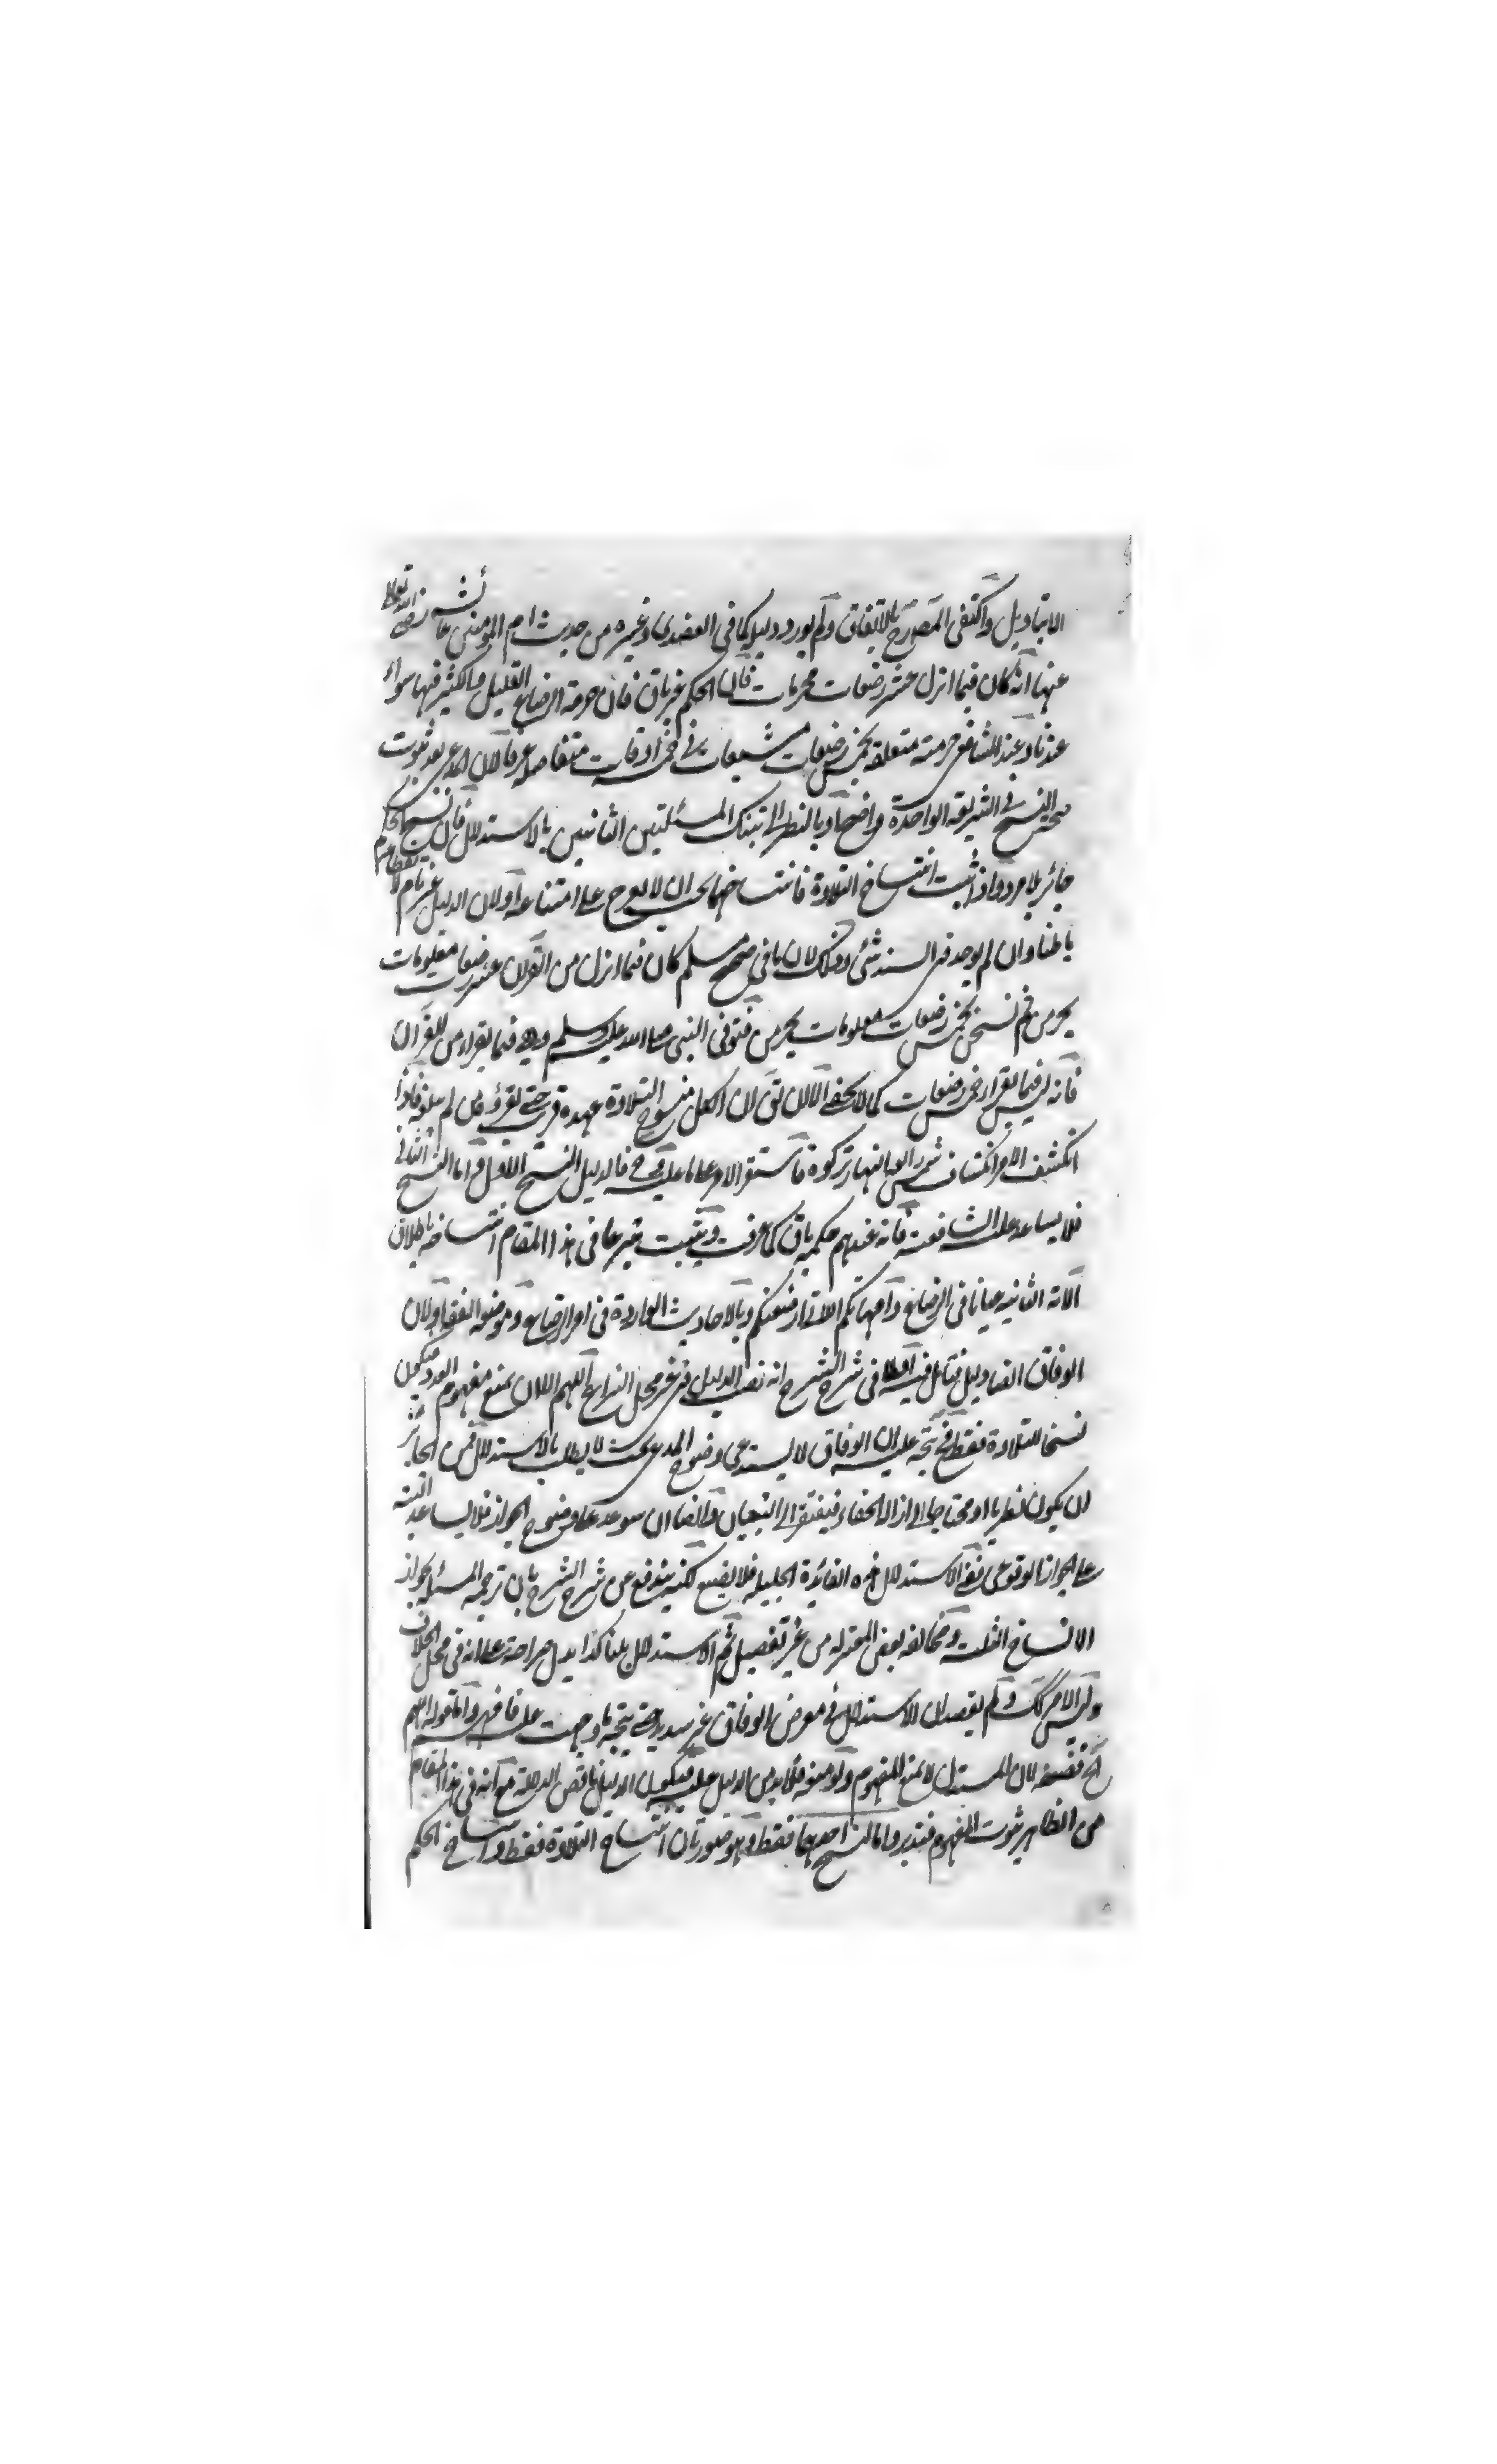 الا بتاويل واكتفى المصرح بالاتفاق ولم يورد دليله كما في العضدي وغيره من حديث ام المؤمنين عائشة رضي الله تعالى
عنها انه كان فيما انزل عشر رضعات محرمات فان الحكم غير باق فان حرمة الرضاع القليل والكثير فيها سواء
عندنا وعند الشافعي حرمته متعلقة بخمس رضعات مشبعات في خمسة اوقات متفاصلة عرفا لان المدعى بعد ثبوت
حسن النسخ في الشريعة الواحدة واضح وبالنظر الى تينك المسئلتين الثانيتين بالاستدلال فان نسخ احكام
جائز بلا مرد واذا ثبت انتساخ التلاوة فانتساخهما بحسب ان لا يعرج على امتناعه اولان الدليل غير تام لانقطاعه
باطنا وان لم يوجد في السند شئ وذلك لان ما في صحيح مسلم كان فيما انزل من القرآن عشر رضعات معلومات
يحرمن ثم نسخن بخمس رضعات معلومات يحرمن فتوفى النبي صلى الله عليه وسلم وهي فيما يقرأ من القرآن
فانه ليس فيما يقرأ خمس رضعات كما لا يخفى الا ان يق ان الكل منسوخ التلاوة عهده قرب حتى يقرؤه من لم يبلغه فاذا
انكشف الامر انكشاف شمس رابعة النهار تركوه فاستقر الامر على ما عليه فالدليل النسخ الاول واما النسخ الثاني
فلا يساعد عليه الشافعية فانه عندهم حكمه باق كما عرفت ويثبت في هذا المقام انتساخه باطلاق
الآية الثانية عيانا في الرضاع وامهاتكم اللاتي ارضعنكم وبالاحاديث الواردة في امر الرضاع وموضعه الفقه اولان
الوفاق ايضا دليل فتامل فيه في شرح الشرح انه نصب الدليل في غير محل النزاع اللهم الا ان يمنع مفهوم العدد فيكون
نسخا للتلاوة فقط فيتجه عليه ان الوفاق لا يستدعي وضوح المدعى حتى لا يطلب بالاستدلال فمن الجائز
ان يكون نظريا او محتاجا الى ازالة الخفاء فيفتقر الى التبيان وايضا ان سوعد على وضوح الجواز فلا يساعد البتة
على الجواز الوقوعي ففي الاستدلال هذه الفائدة الجليلة فلا يضيع لكنه يندفع عن شرح الشرح بان ترجمة المسئلة بجواز
الانساخ الثلث ومخالفة بعض المعتزلة من غير تفصيل ثم الاستدلال بلنا كذا يدل صراحة على انه في محل الخلاف
وليس الامر كك ولم يقصد ان الاستدلال في معرض الوفاق غير سديد حتى يتجه ما وجهت عليه فافهم واما قوله اللهم
الخ ففيه لان المستدل لا يمنع المفهوم ولو منعه فلا بد من الدليل عليه فيكون الدليل ناقص الدلالة مع انه في هذا المقام
من الظاهر ثبوت المفهوم فتدبر واما لنسخ احدهما فقط وهو صورتان انتساخ التلاوة فقط وانتساخ الحكم